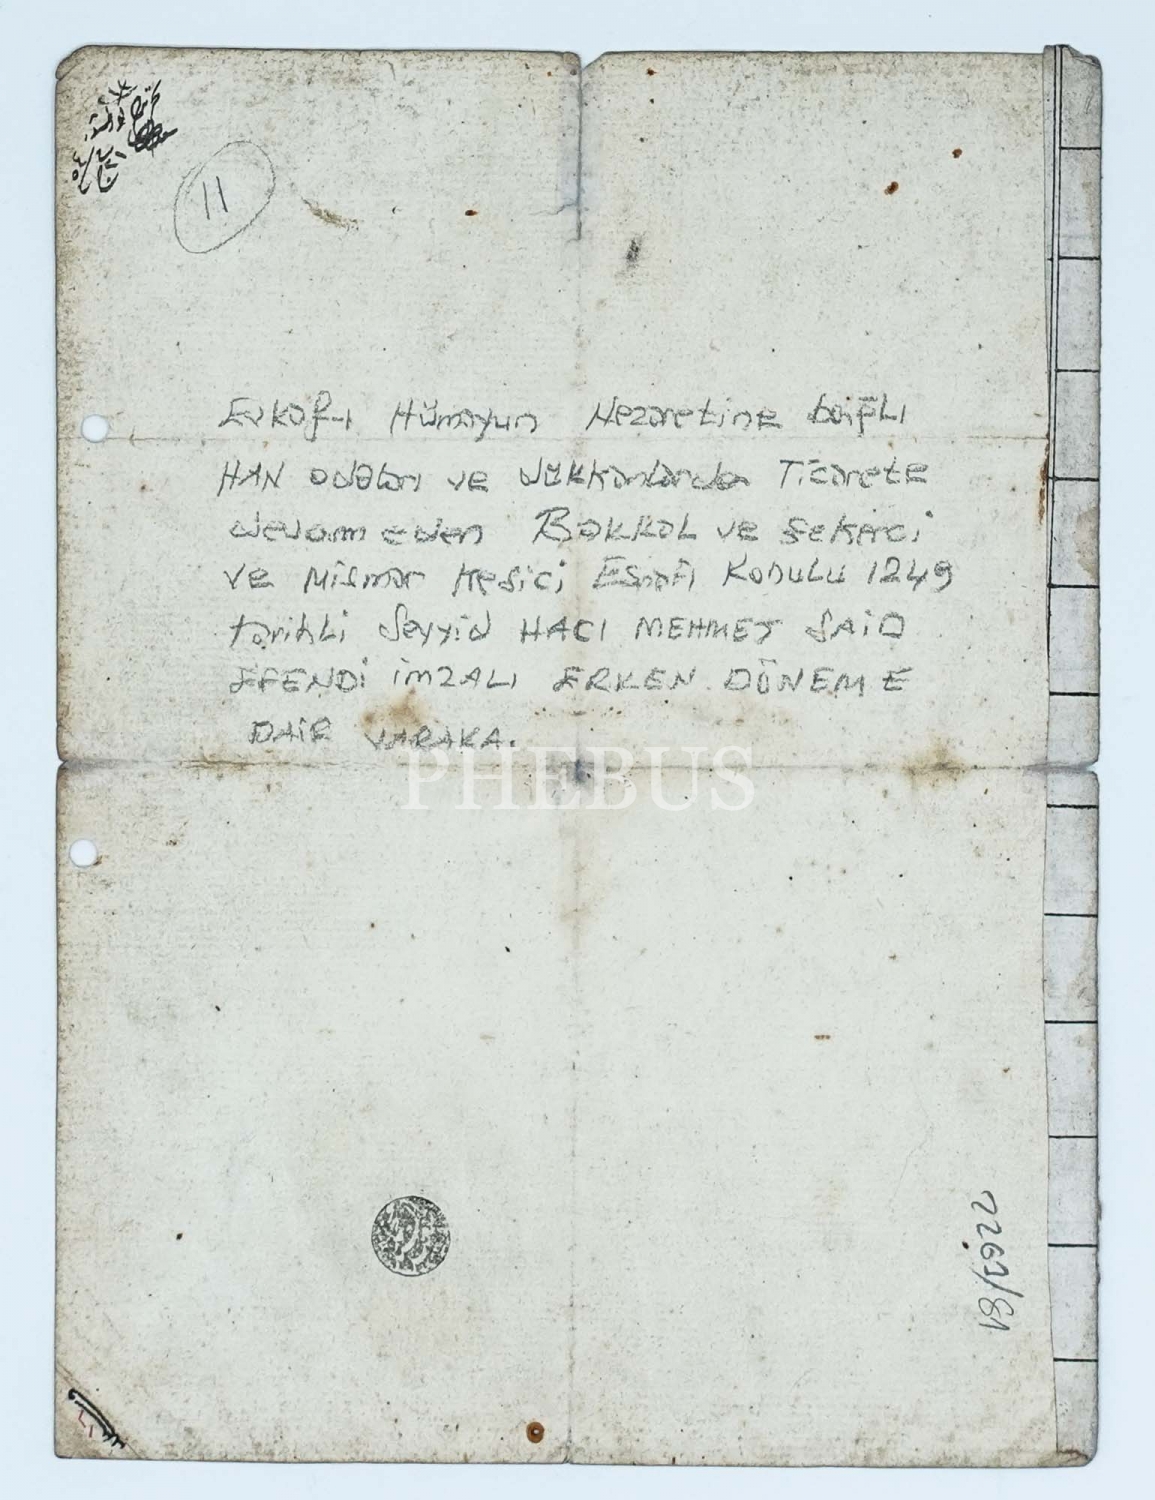 11
Evkaf-ı Hümayun Nezaretine bağlı
HAN odaları ve dükkanlarda Ticarete
devam eden Bakkal ve şekerci
ve Mismar kesici Esnafı Konulu 1249
tarihli Seyyid HACI MEHMET SAİD
EFENDİ imZALI ERKEN DÖNEME
DAİR VARAKA.
PHEBUS